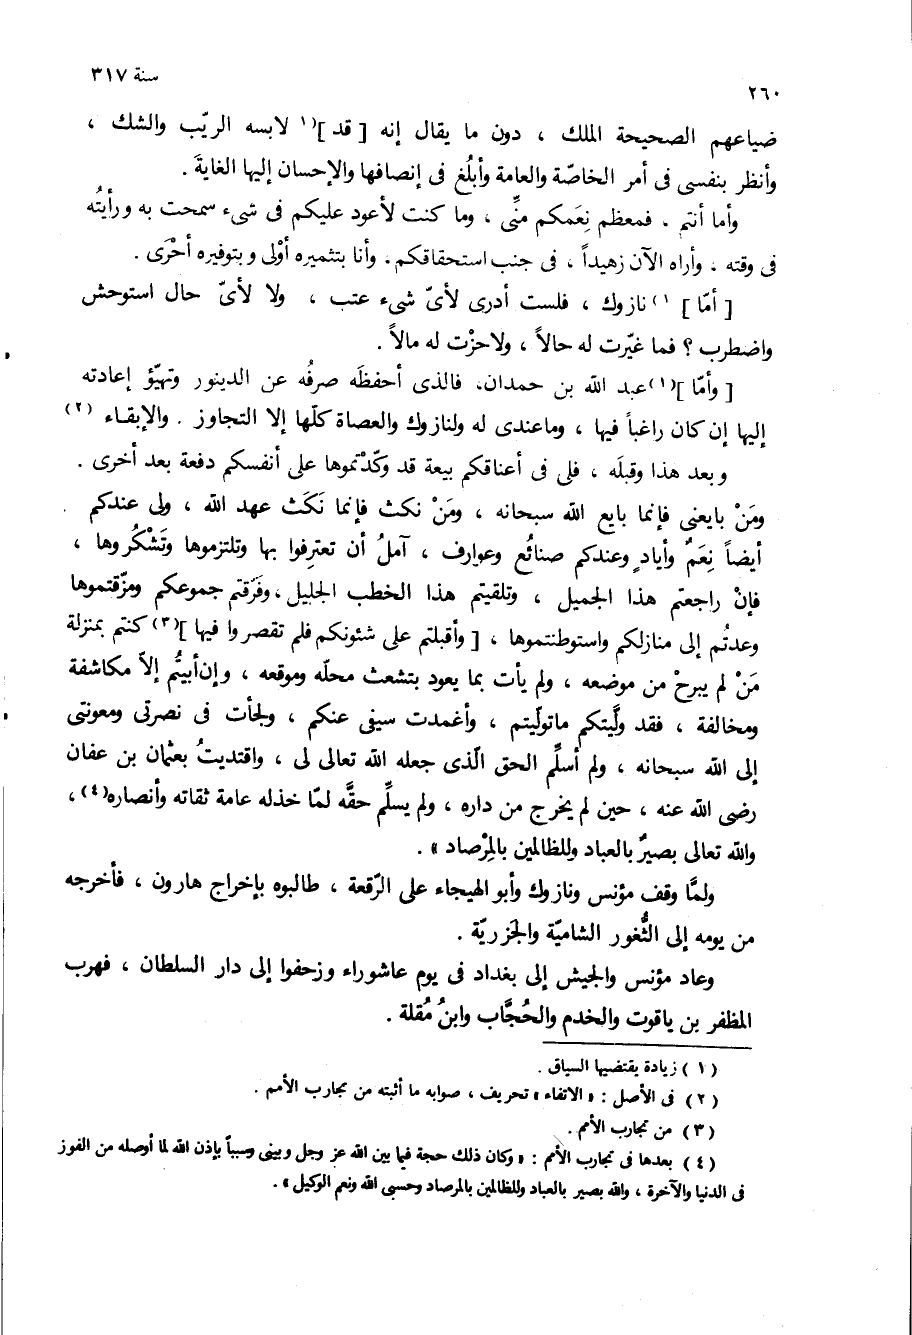 سنة ٣١٧
٢٦٠
ضياعهم الصحيحة الملك ، دون ما يقال إنه [ قد ](١ لابسه الريّب والشك ،
وأنظر بنفسى فى أمر الخاصّة والعامة وأبلُغ فى إنصافها والإحسان إليها الغايةَ .
وأما أنتم . فمعظم نِعَمكم منِّى ، وما كنت لأعود عليكم فى شىء سمحت به ورأيتُه
فى وقته ، وأراه الآن زهيداً ، فى جنب استحقاقكم ، وأنا بتثميره أوْلى وبتوفيره أحْرَى .
[ أمّا ] (١) نازوك ، فلست أدرى لأىّ شىء عتب ، ولا لأىّ حال استوحش
واضطرب ؟ فما غيّرت له حالاً ، ولا حزْت له مالاً .
[ وأمّا ](١) عبد الله بن حمدان، فالذى أحفظَه صرفُه عن الدينور وتهيّؤ إعادته
إليها إن كان راغباً فيها ، وما عندى له ولنازوك والعصاة كلّها إلا التجاوز . والإبقاء (٢)
وبعد هذا وقبلَه ، فلى فى أعناقكم بيعة قد وكّدْتموها على أنفسكم دفعة بعد أخرى .
ومَنْ بايعنى فإنما بايع الله سبحانه ، ومَنْ نكث فإنما نَكَث عهد الله ، ولى عندكم
أيضاً نِعَمٌ وأيادٍ وعندكم صنائع وعوارف ، آملُ أن تعترِفوا بها وتلتزموها وتَشْكُروها ،
فإنْ راجعتم هذا الجميل ، وتلقيتم هذا الخطب الجليل ، وفَرّقتم جموعكم ومزّقتموها
وعدتُم إلى منازلكم واستوطنتموها ، [ وأقبلتم على شئونكم فلم تقصروا فيها ](٣) كنتم بمنزلة
مَنْ لم يبرحْ من موضعه ، ولم يأت بما يعود بتشعث محلّه وموقعه ، وإن أبيتُم إلاّ مكاشفة
ومخالفة ، فقد ولَّيتكم ما تولّيتم ، وأغمدت سيفى عنكم ، ولجأت فى نصرتى ومعونتى
إلى الله سبحانه ، ولم أسلِّم الحق الّذى جعله الله تعالى لى ، واقتديتُ بعثمان بن عفان
رضى الله عنه ، حين لم يخرج من داره ، ولم يسلِّم حقَّه لمّا خذله عامة ثقاته وأنصاره(٤) ،
والله تعالى بصيرٌ بالعباد وللظالمين بالمِرْصاد » .
ولمَّا وقف مؤنس ونازوك وأبو الهيجاء على الرّقعة ، طالبوه بإخراج هارون ، فأخرجه
من يومه إلى الثُّغور الشاميّة والجَزريّة .
وعاد مؤنس والجيش إلى بغداد فى يوم عاشوراء وزحفوا إلى دار السلطان ، فهرب
المظفر بن ياقوت والخدم والحُجَّاب وابنُ مُقلة .
( ١ ) زيادة يقتضيها السياق .
( ٢ ) فى الأصل : « الاتفاء » تحريف ، صوابه ما أثبته من تجارب الأمم .
( ٣ ) من تجارب الأمم .
( ٤ ) بعدها فى تجارب الأمم : « وكان ذلك حجة فيما بين الله عز وجل وبينى وسبباً بإذن الله لما أوصله من الفوز
فى الدنيا والآخرة ، والله بصير بالعباد وللظالمين بالمرصاد وحسبى الله ونعم الوكيل » .